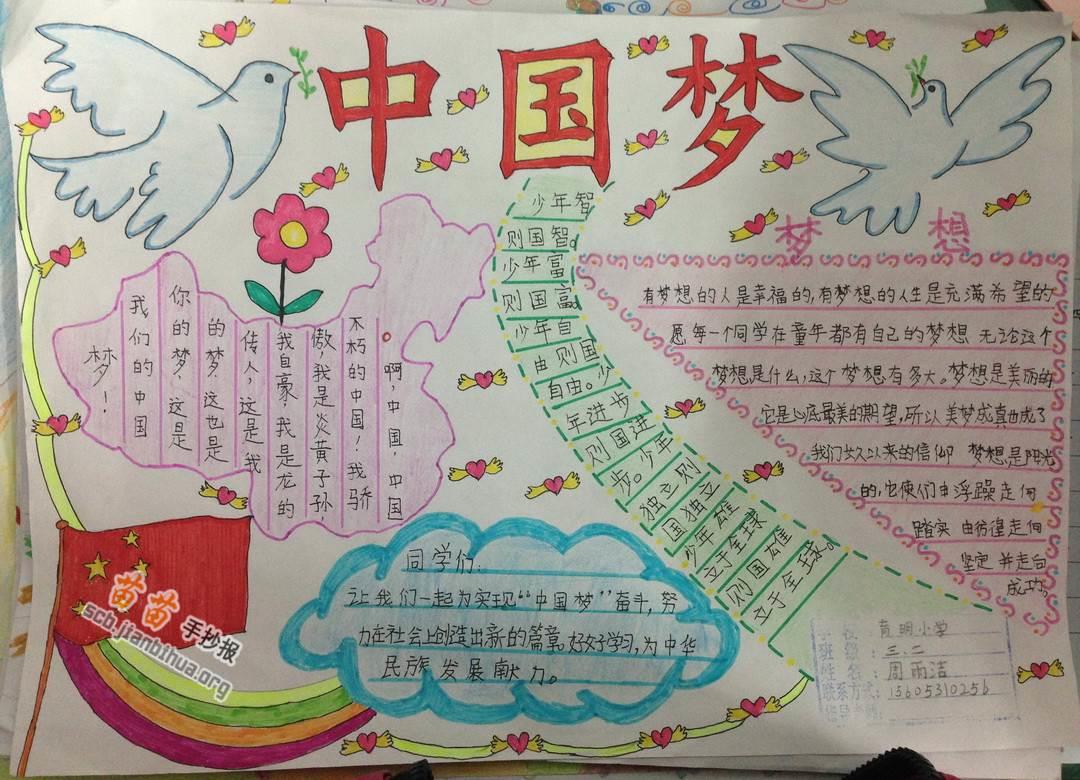 中国梦
啊，中国，中国
不朽的中国！我骄
傲，我是炎黄子孙，
我自豪，我是龙的
传人，这是我
的梦，这也是
你的梦，这是
我们的中国
梦！
少年智
则国智。
少年富
则国富。
少年自
由则国
自由。少
年进步
则国进
步。少年
独立则
国独立
少年雄
立于全球
则国雄
立于全球。
梦 想
有梦想的人是幸福的，有梦想的人生是充满希望的
愿每一个同学在童年都有自己的梦想 无论这个
梦想是什么，这个梦想有多大。梦想是美丽的
它是心底最美的期望，所以美梦成真也成了
我们长久以来的信仰 梦想是阳光
的，它使人们由浮躁走向
踏实 由彷徨走向
坚定 并走向
成功。
同学们：
让我们一起为实现“中国梦”奋斗，努
力在社会上创造出新的篇章，好好学习，为中华
民族发展献力。
苗苗手抄报
scb.jianbihua.org
学 校：育明小学
班 级：三.二
姓 名：周雨洁
联系方式：15605310256